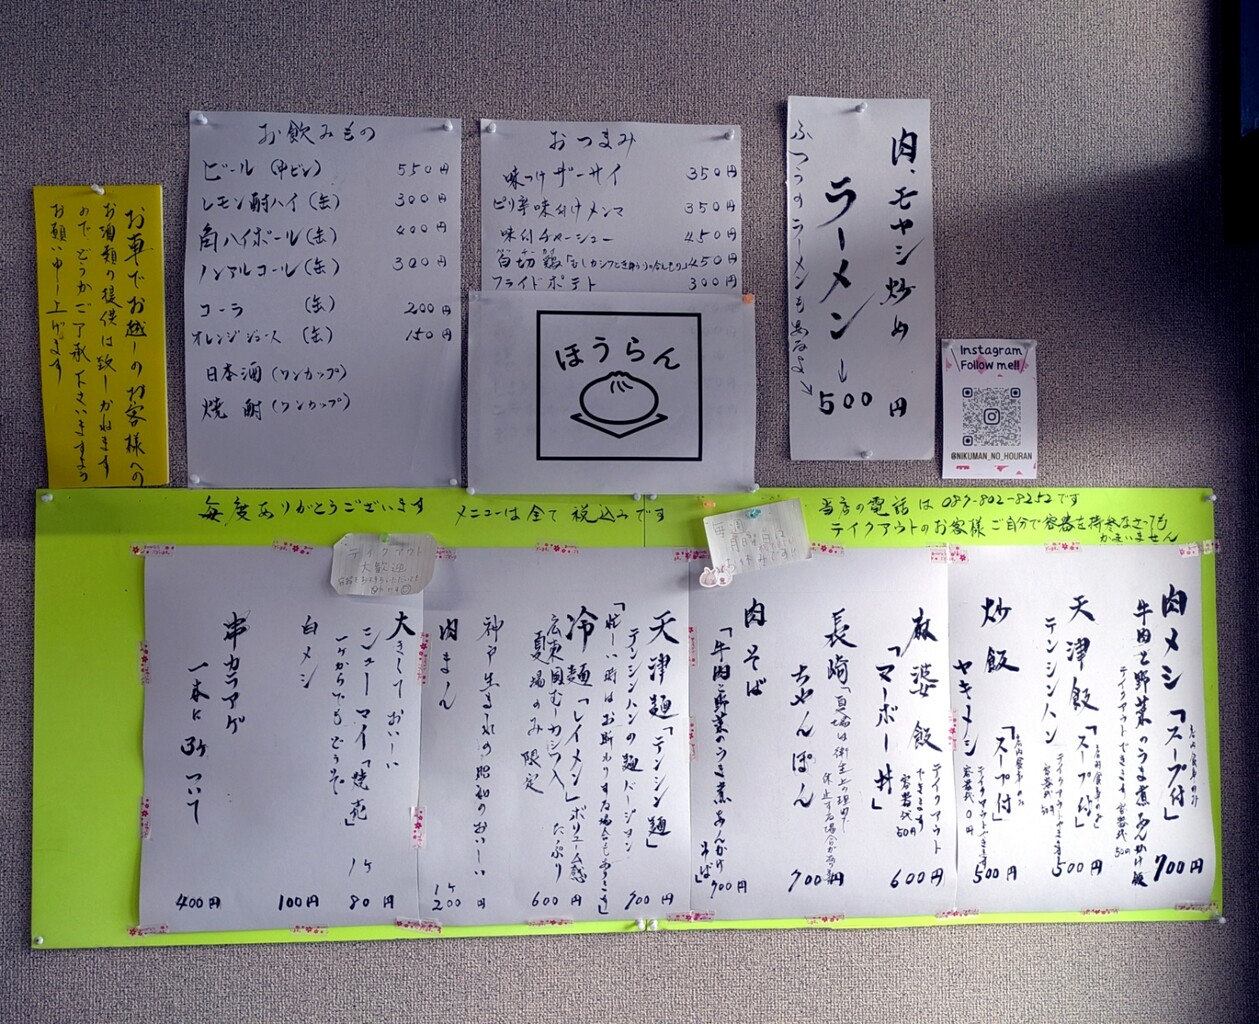 お車でお越しのお客様への
お酒類の提供は致しかねます
ので、どうかご了承下さいますよう
お願い申し上げます
お飲みもの
ビール (中ビン) 550円
レモン酎ハイ (缶) 300円
角ハイボール (缶) 400円
ノンアルコール (缶) 300円
コーラ (缶) 200円
オレンジジュース (缶) 150円
日本酒 (ワンカップ)
焼酎 (ワンカップ)
おつまみ
味つけザーサイ 350円
ピリ辛味付けメンマ 350円
味付チャーシュー 450円
白切鶏 450円
フライドポテト 300円
ほうらん
肉、モヤシ炒め
ラーメン→500円
ふつうのラーメンもあるよ
Instagram
Follow me!!
@NIKUMAN_NO_HOURAN
毎度ありがとうございます メニューは全て税込みです
当店の電話は089-802-8252です
テイクアウトのお客様ご自分で容器を持参なさっても
かまいません
テイクアウト
大歓迎
肉メシ「スープ付」 700円
牛肉と野菜のうま煮あんかけ飯
テイクアウトできます 容器代50円
天津飯「スープ付」 500円
テンシンハン
炒飯「スープ付」 500円
ヤキメシ
麻婆飯 600円
「マーボー丼」
テイクアウト
できます
容器代50円
長崎ちゃんぽん 700円
「夏場は衛生上の理由で
休止する場合があります
肉そば 700円
「牛肉と野菜のうま煮あんかけそば」
天津麺「テンシン麺」 700円
テンシンハンの麺バージョン
「忙しい時はお断わりする場合もあります」
冷麺「レイメン」ボリューム感たっぷり 600円
広東風むしカシワ入
夏場のみ限定
神戸生まれの昭和のおいしい
肉まん 1ケ 200円
大きしておいしい
シューマイ「焼売」 1ケ 80円
一ケからでもどうぞ
白メシ 100円
串カラアゲ 400円
一本に3ケついて